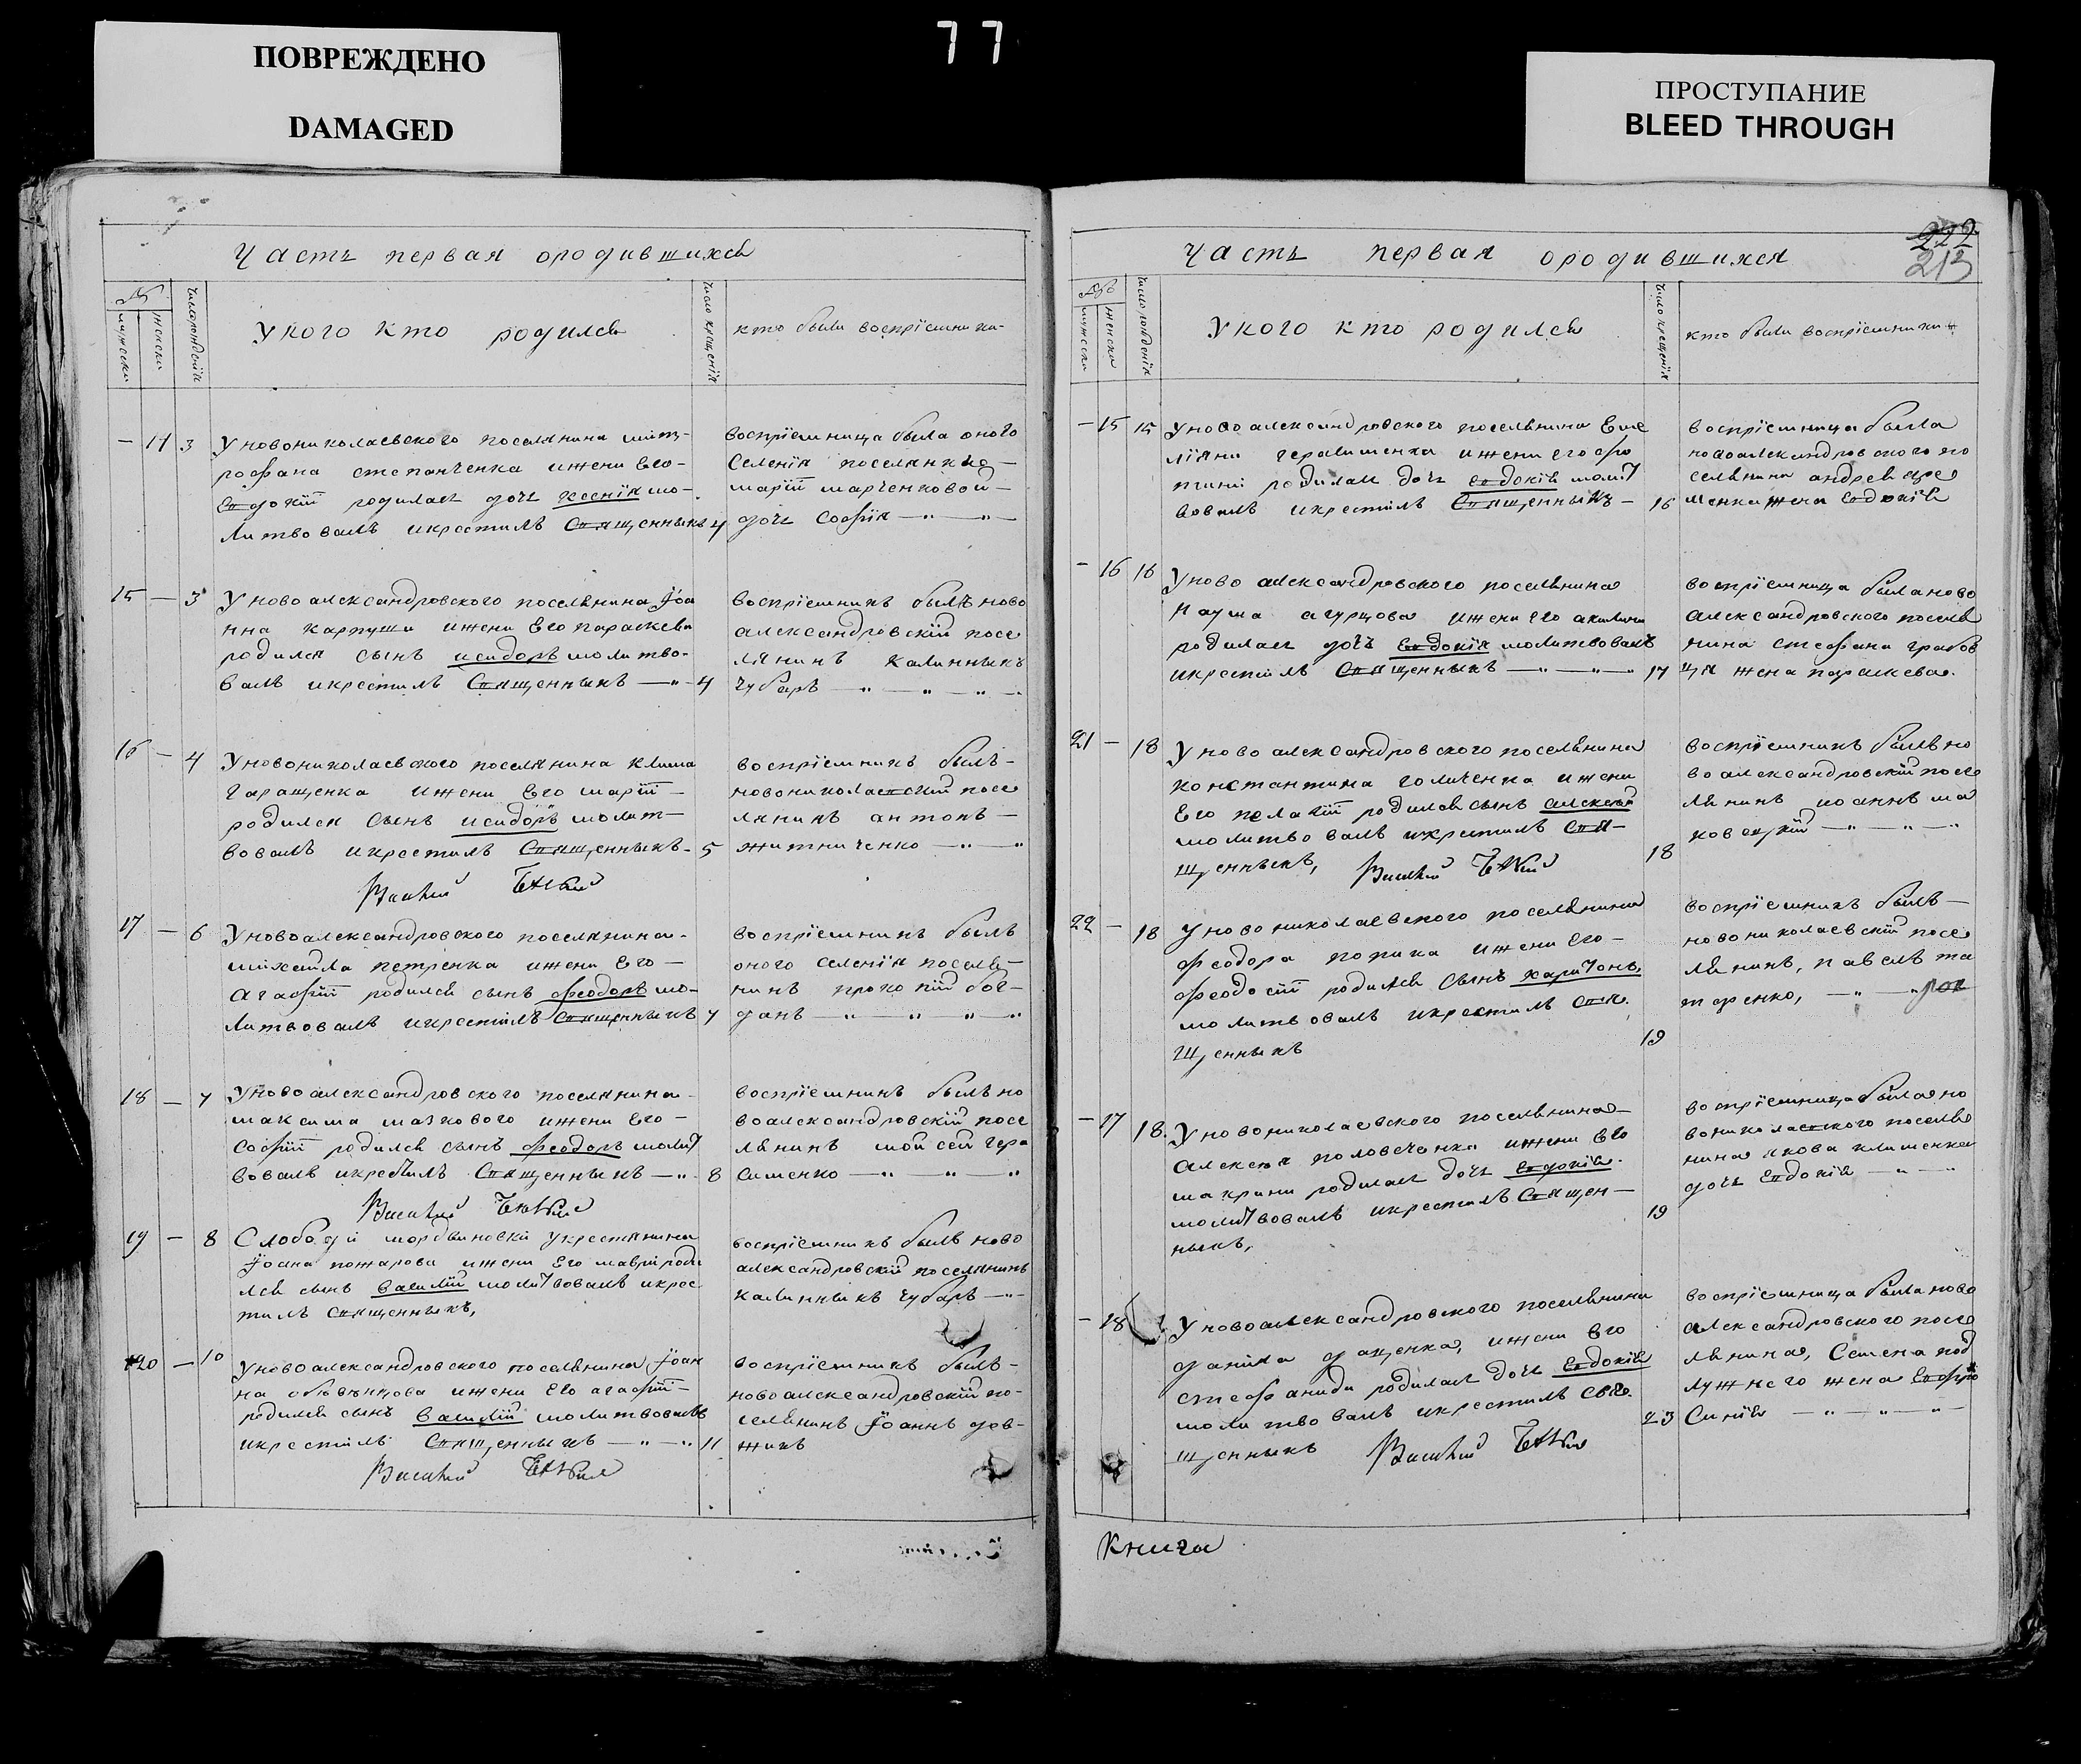 ПОВРЕЖДЕНО
DAMAGED
77
ПРОСТУПАНИЕ
BLEED THROUGH
Часть первая ородившихся
№
мужески
женски
число рожденія
Укого кто родился
число крещенія
кто были воспріемники
— 14 3 Уновониколаевского поселянина мит-
рофана степанченка ижени Его-
Евдокіи родилась дочь ксенія мо-
литвовалъ икрестилъ Священникъ 4
воспріемница была оного
Селенія поселянки
маріи марченковой —
дочь Софія — „ — „
15 — 3 У новоалександровского поселянина Іоа
нна карпуши ижени Его параскеви
родился сынъ исидоръ молитво-
валъ икрестилъ Священникъ — „ 4
воспріемникъ былъ ново
александровскій посе
лянинъ Калинникъ
Чубаръ — „ — „ —
16 — 4 Уновониколаевского поселянина клима
Гаращенка ижени Его маріи —
родился Сынъ исидоръ молит-
вовалъ икрестилъ Священникъ - 5
воспріемникъ былъ -
новониколаевский посе
лянинъ антонъ —
житниченко — „ — „
Василій
17 — 6 Уновоалександровского поселянина -
михаила петренка ижени Его —
агафіи родился сынъ феодоръ мо-
литвовалъ икрестилъ Священникъ 7
воспріемникъ былъ
оного селенія поселя-
нинъ прокопій бог-
данъ — „ — „ — „
18 — 7 Уновоалександровского поселянина -
максима мазкового ижени Его —
Софіи родился сынъ феодоръ молит
вовалъ икрестилъ Священникъ — „ 8
воспріемникъ былъ но
воалександровскій посе
лянинъ мойсей гера
сименко — „ — „ — „
Василій
19 — 8 Слободи мордвиновки укрестянина
Іоана пожарова ижени Его маври роди
лся сынъ василій молитвовалъ икрес
тилъ Священникъ,
воспріемникъ былъ ново
александровскій поселянинъ
калинникъ чубаръ — „ —
20 — 10 Уновоалександровского поселянина Іоан
на ижени Его агафіи —
родился сынъ василій молитвовалъ
икрестилъ Священникъ — „ — „ 11
воспріемникъ былъ -
новоалександровскій по-
селянинъ Іоаннъ дов-
жикъ
Василій
Часть первая ородившихся
222
213
№
мужески
женски
число рожденія
Укого кто родился
число крещенія
кто были воспріемники
— 15 15 Уновоалександровского поселянина Еме
ліяни герасименка ижени его фо
тини родилась дочь евдокія молит
вовалъ икрестилъ Священникъ — 16
воспріемница была
новоалександровского по
селянина андрея
менка жена Евдокія
- 16 16 Уново александровского поселянина
наума агурцова ижени Его акилини
родилась дочь Евдокія молитвовалъ
икрестилъ Священникъ — „ — „ 17
воспріемница была ново
александровского поселя
нина стефана грабов
ця жена параскева.
21 — 18 Уново александровского поселянина
константина голиченка ижени
Его пелагіи родился сынъ алексѣй
молитвовалъ икрестилъ Свя-
щенникъ, 18
воспріемникъ былъ но
воалександровскій посе
лянинъ иоаннъ ма
ковецкій — „ — „ — „
Василій
22 — 18 Уновониколаевского поселянина
феодора попика ижени Его —
феодосіи родился Сынъ харитонъ,
молитвовалъ икрестилъ Свя
щенникъ 19
воспріемникъ былъ —
новониколаевскій посе
лянинъ, павелъ та
таренко, — „ — „
— 17 18. Уновониколаевского поселянина —
алексѣя половеченка ижени Его
макрини родилась дочь Евдокія.
молитвовалъ икрестилъ Священ —
никъ, 19
воспріемница была но
вониколаевского поселя
нина якова клименка
дочь Евдокія — „ — „
— 18 Уновоалександровского поселянина
данила даценка, ижени Его
стефаниди родилась дочь Евдокія
молитвовалъ икрестилъ Свя
щенникъ 23
воспріемница была ново
александровского посе
лянина, Семена под
лужнего жена Ефро
Синія — „ — „ — „
Василій
Книга